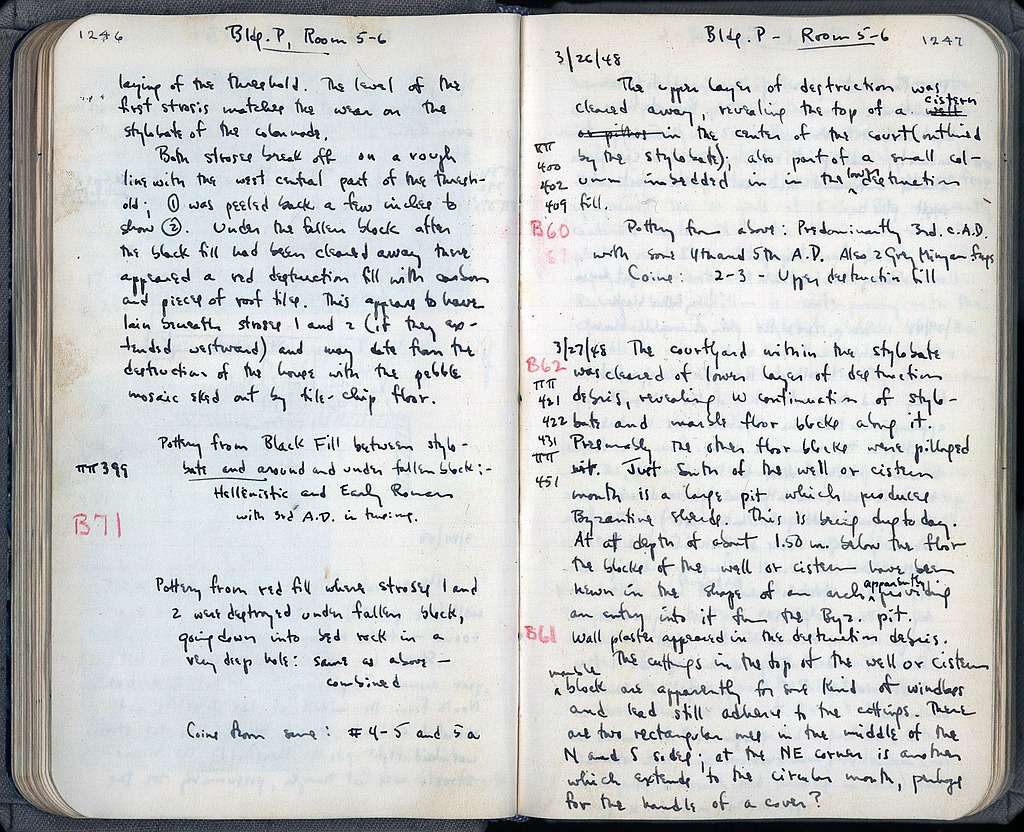 1246
Bldg. P, Room 5-6
laying of the threshold. The level of the
first strosis matches the wear on the
stylobate of the colonnade.
Both stroses break off on a rough
line with the west central part of the thresh-
old; ① was peeled back a few inches to
show ②. Under the fallen block after
the black fill had been cleared away there
appeared a red destruction fill with carbon
and pieces of roof tiles. This appears to have
lain beneath stroses 1 and 2 (if they ex-
tended westward) and may date from the
destruction of the house with the pebble
mosaic eked out by tile-chip floor.
Pottery from Black Fill between stylo-
ππ 399 bate and around and under fallen block:-
Hellenistic and Early Roman
with 3rd A.D. intrusions.
B71
Pottery from red fill where stroses 1 and
2 were destroyed under fallen block,
going down into bed rock in a
very deep hole: same as above -
combined
Coins from same: #4-5 and 5a
Bldg. P - Room 5-6
1247
3/26/48
The upper layer of destruction was
cleared away, revealing the top of a well cistern
or pithos in the center of the court (outlined
ππ by the stylobate); also part of a small col-
400
402 umn imbedded in in the lower destruction
409 fill.
B60 Pottery from above: Predominantly 3rd. c. A.D.
61 with some 4th and 5th A.D. Also 2 Grey Minyan frags
Coins: 2-3 - Upper destruction fill
3/27/48 The courtyard within the stylobate
B62 was cleared of lower layer of destruction
ππ
421 debris, revealing W continuation of stylo-
422 bate and marble floor blocks along it.
431 Presumably the other floor blocks were pillaged
ππ Just South of the well or cistern
451 mouth is a large pit which produces
Byzantine sherds. This is being dug today.
At at depth of about 1.50 m. below the floor
the blocks of the well or cistern have been
hewn in the shape of an arch apparently providing
an entry into it from the Byz. pit.
B61 Wall plaster appeared in the destruction debris.
The cuttings in the top of the well or cistern
marble
block are apparently for some kind of windlass
and lead still adheres to the cuttings. There
are two rectangular ones in the middle of the
N and S sides; at the NE corner is another
which extends to the circular mouth, perhaps
for the handle of a cover?